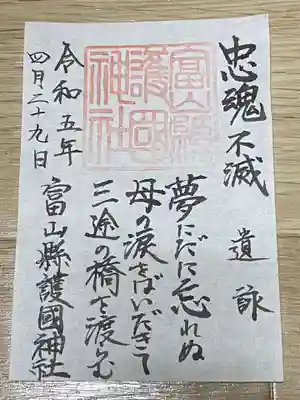 忠魂不滅
遺詠
夢にだに忘れぬ
母の涙をばいだきて
三途の橋を渡らむ
富山縣護國神社
富山縣
護國
神社
令和五年
四月二十九日